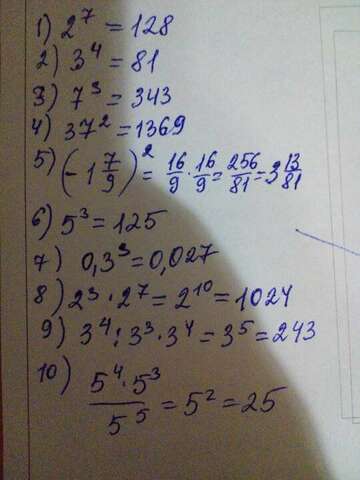 1) 2⁷ = 128
2) 3⁴ = 81
3) 7³ = 343
4) 37² = 1369
5) (-1 7/9)² = 16/9 · 16/9 = 256/81 = 3 13/81
6) 5³ = 125
7) 0,3³ = 0,027
8) 2³ · 2⁷ = 2¹⁰ = 1024
9) 3⁴ : 3³ · 3⁴ = 3⁵ = 243
10) 5⁴ · 5³ / 5⁵ = 5² = 25